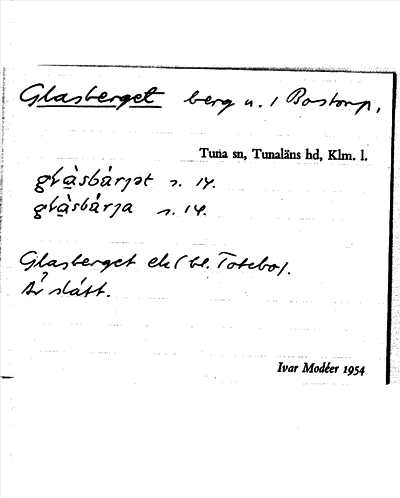 Glasberget berg u. i Bostorp,
Tuna sn, Tunaläns hd, Klm. l.
s. 14.
s. 14.
Glasberget ek (bl. Totebo).
Är slått.
Ivar Modéer 1954